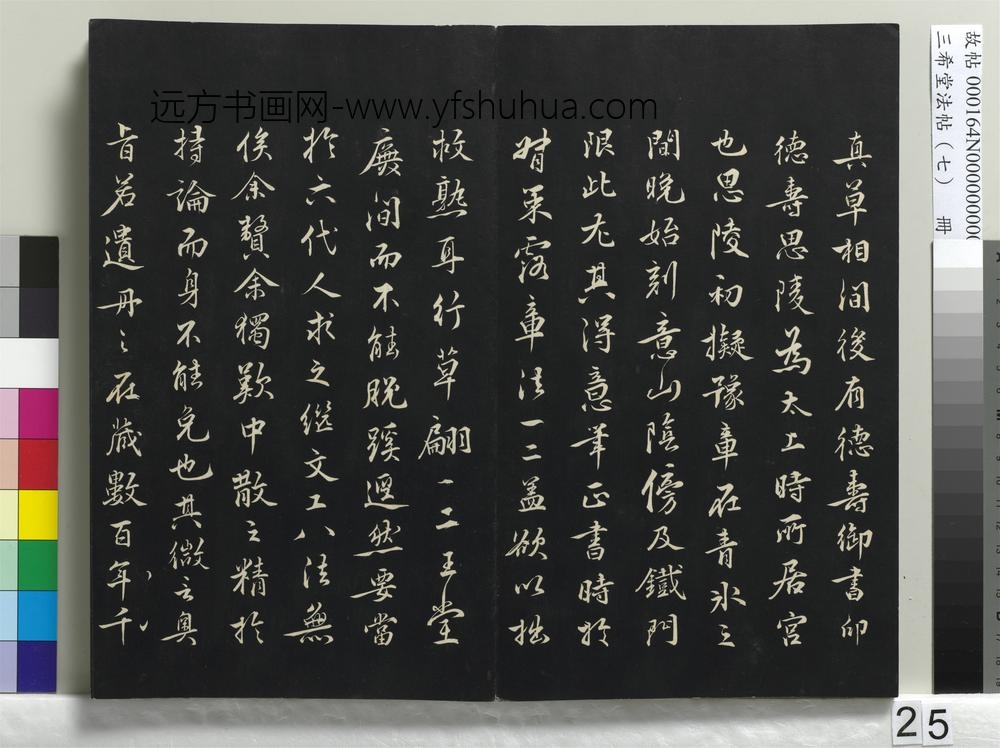 真草相間後有德壽御書卯
德壽思陵為太上時所居宮
也思陵初擬豫章在青氷之
間晚始刻意山陰傍及鐵門
限此尤其得意筆正書時於
捎策露章法一二蓋欲以拙
救熟耳行草翩翩二王堂
廡間而不能脫蹊逕然要當
於六代人求之繼文工八法無
俟余贅余獨歎中散之精於
持論而身不能免也其微言奧
旨若遺丹之在歲數百年千
远方书画网-www.yfshuhua.com
故帖 000164N00000000
三希堂法帖（七） 冊
25